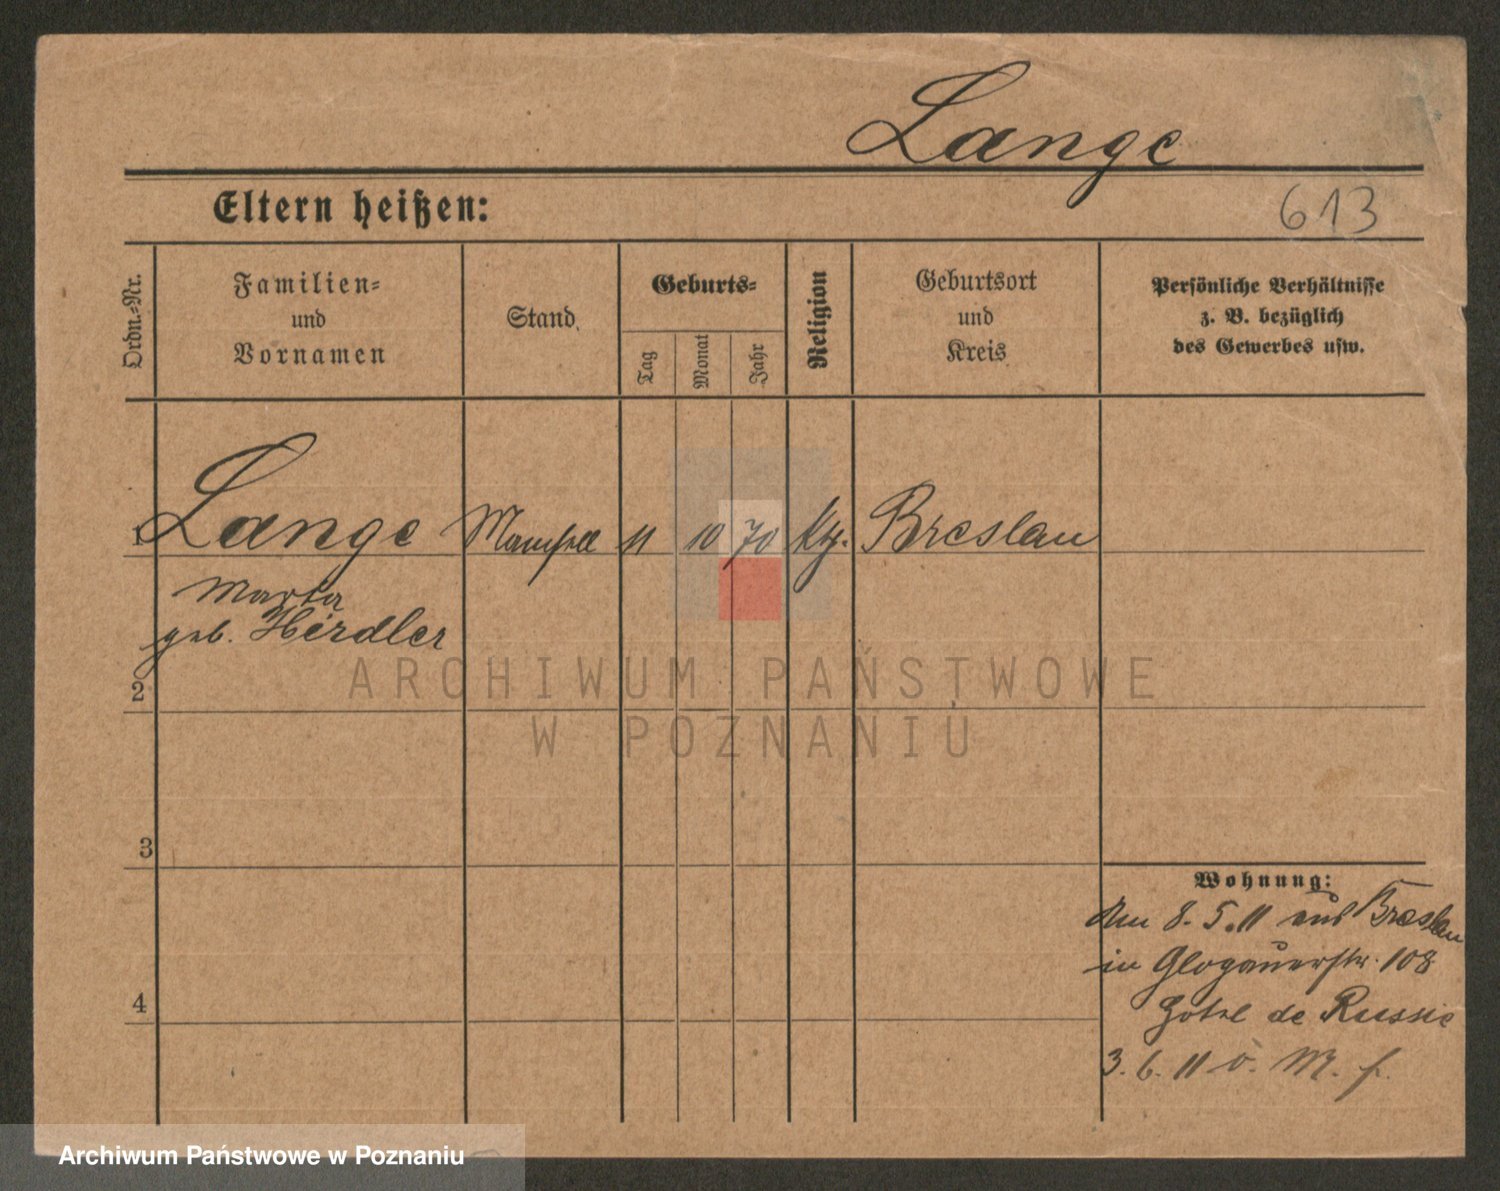 Lange
Eltern heißen:
613
Ordn.-Nr.
Familien-
und
Vornamen
Stand
Geburts-
Tag
Monat
Jahr
Religion
Geburtsort
und
Kreis
Persönliche Verhältnisse
z. B. bezüglich
des Gewerbes usw.
1 Lange Mamsell 11 10 70 Kth. Breslau
Marta
geb. Herdler
2
ARCHIWUM PAŃSTWOWE
W POZNANIU
3
Wohnung:
Am 8. 5. 11 aus Breslau
in Glogauerstr. 108
Hotel de Russie
4
3. 6. 11 o. M. f.
Archiwum Państwowe w Poznaniu